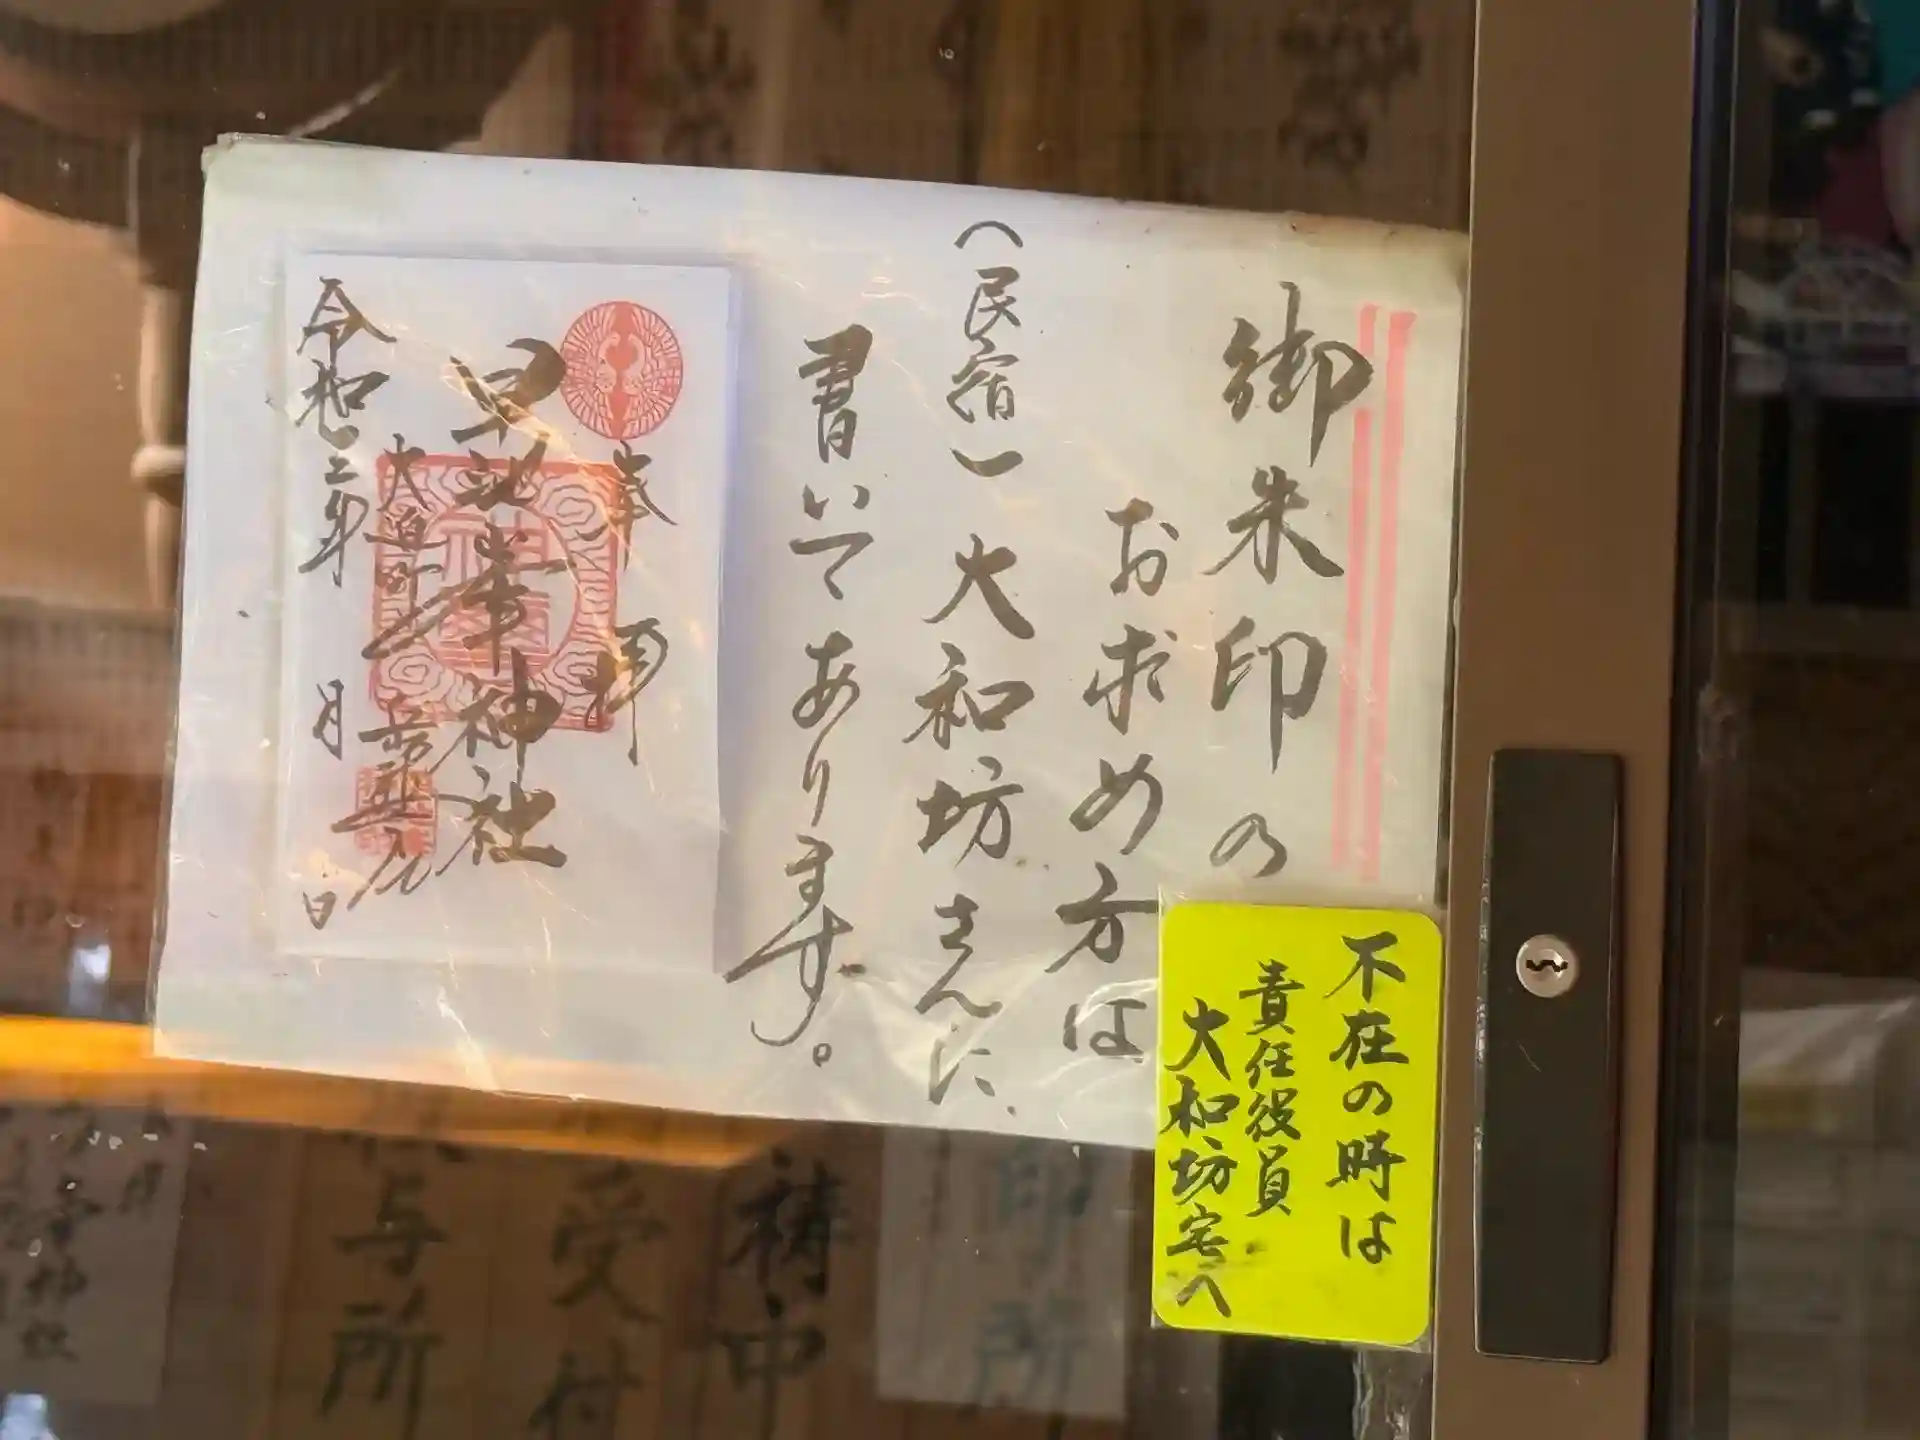 御朱印の
お求め方は
（民宿）大和坊さんに、
書いてあります。
不在の時は
責任役員
大和坊宅へ
奉拝
早池峯神社
大迫町
令和二年 月 日
与所
受付
祷中
印所